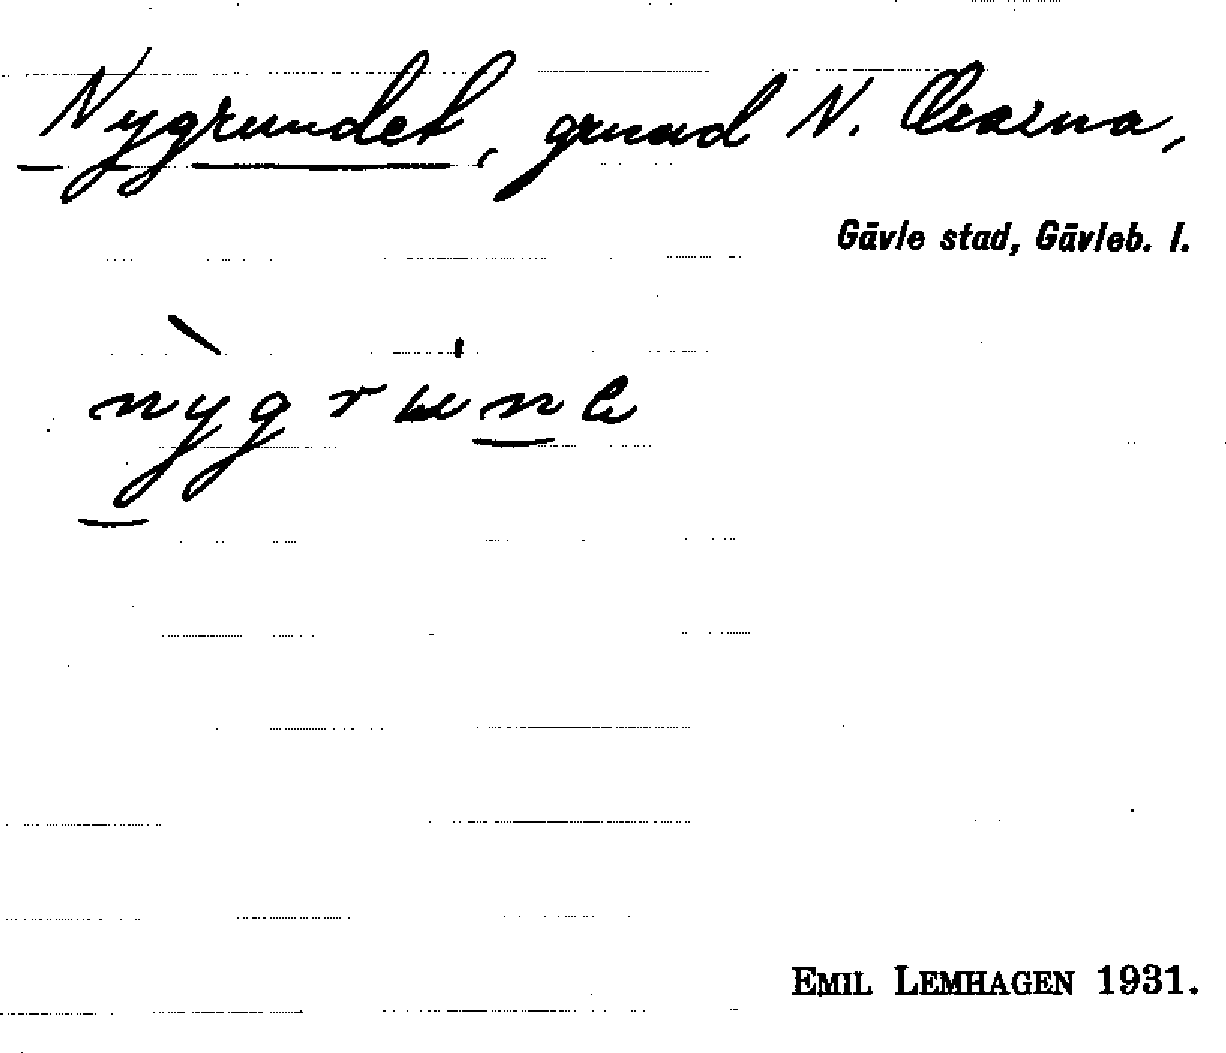 Nygrundet, grund N. Orarna,
Gävle stad, Gävleb. l.
Emil Lemhagen 1931.